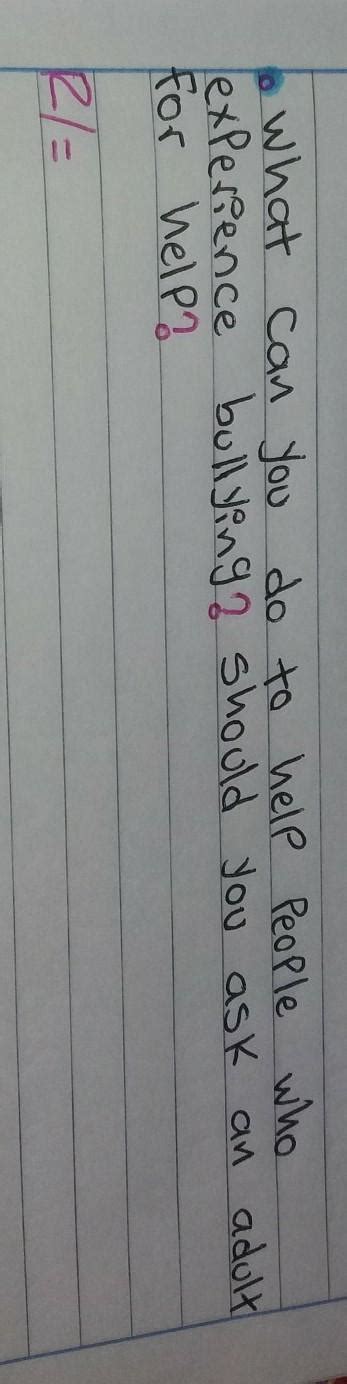 • What can you do to help people who
experience bullying? should you ask an adult
for help?
R/=